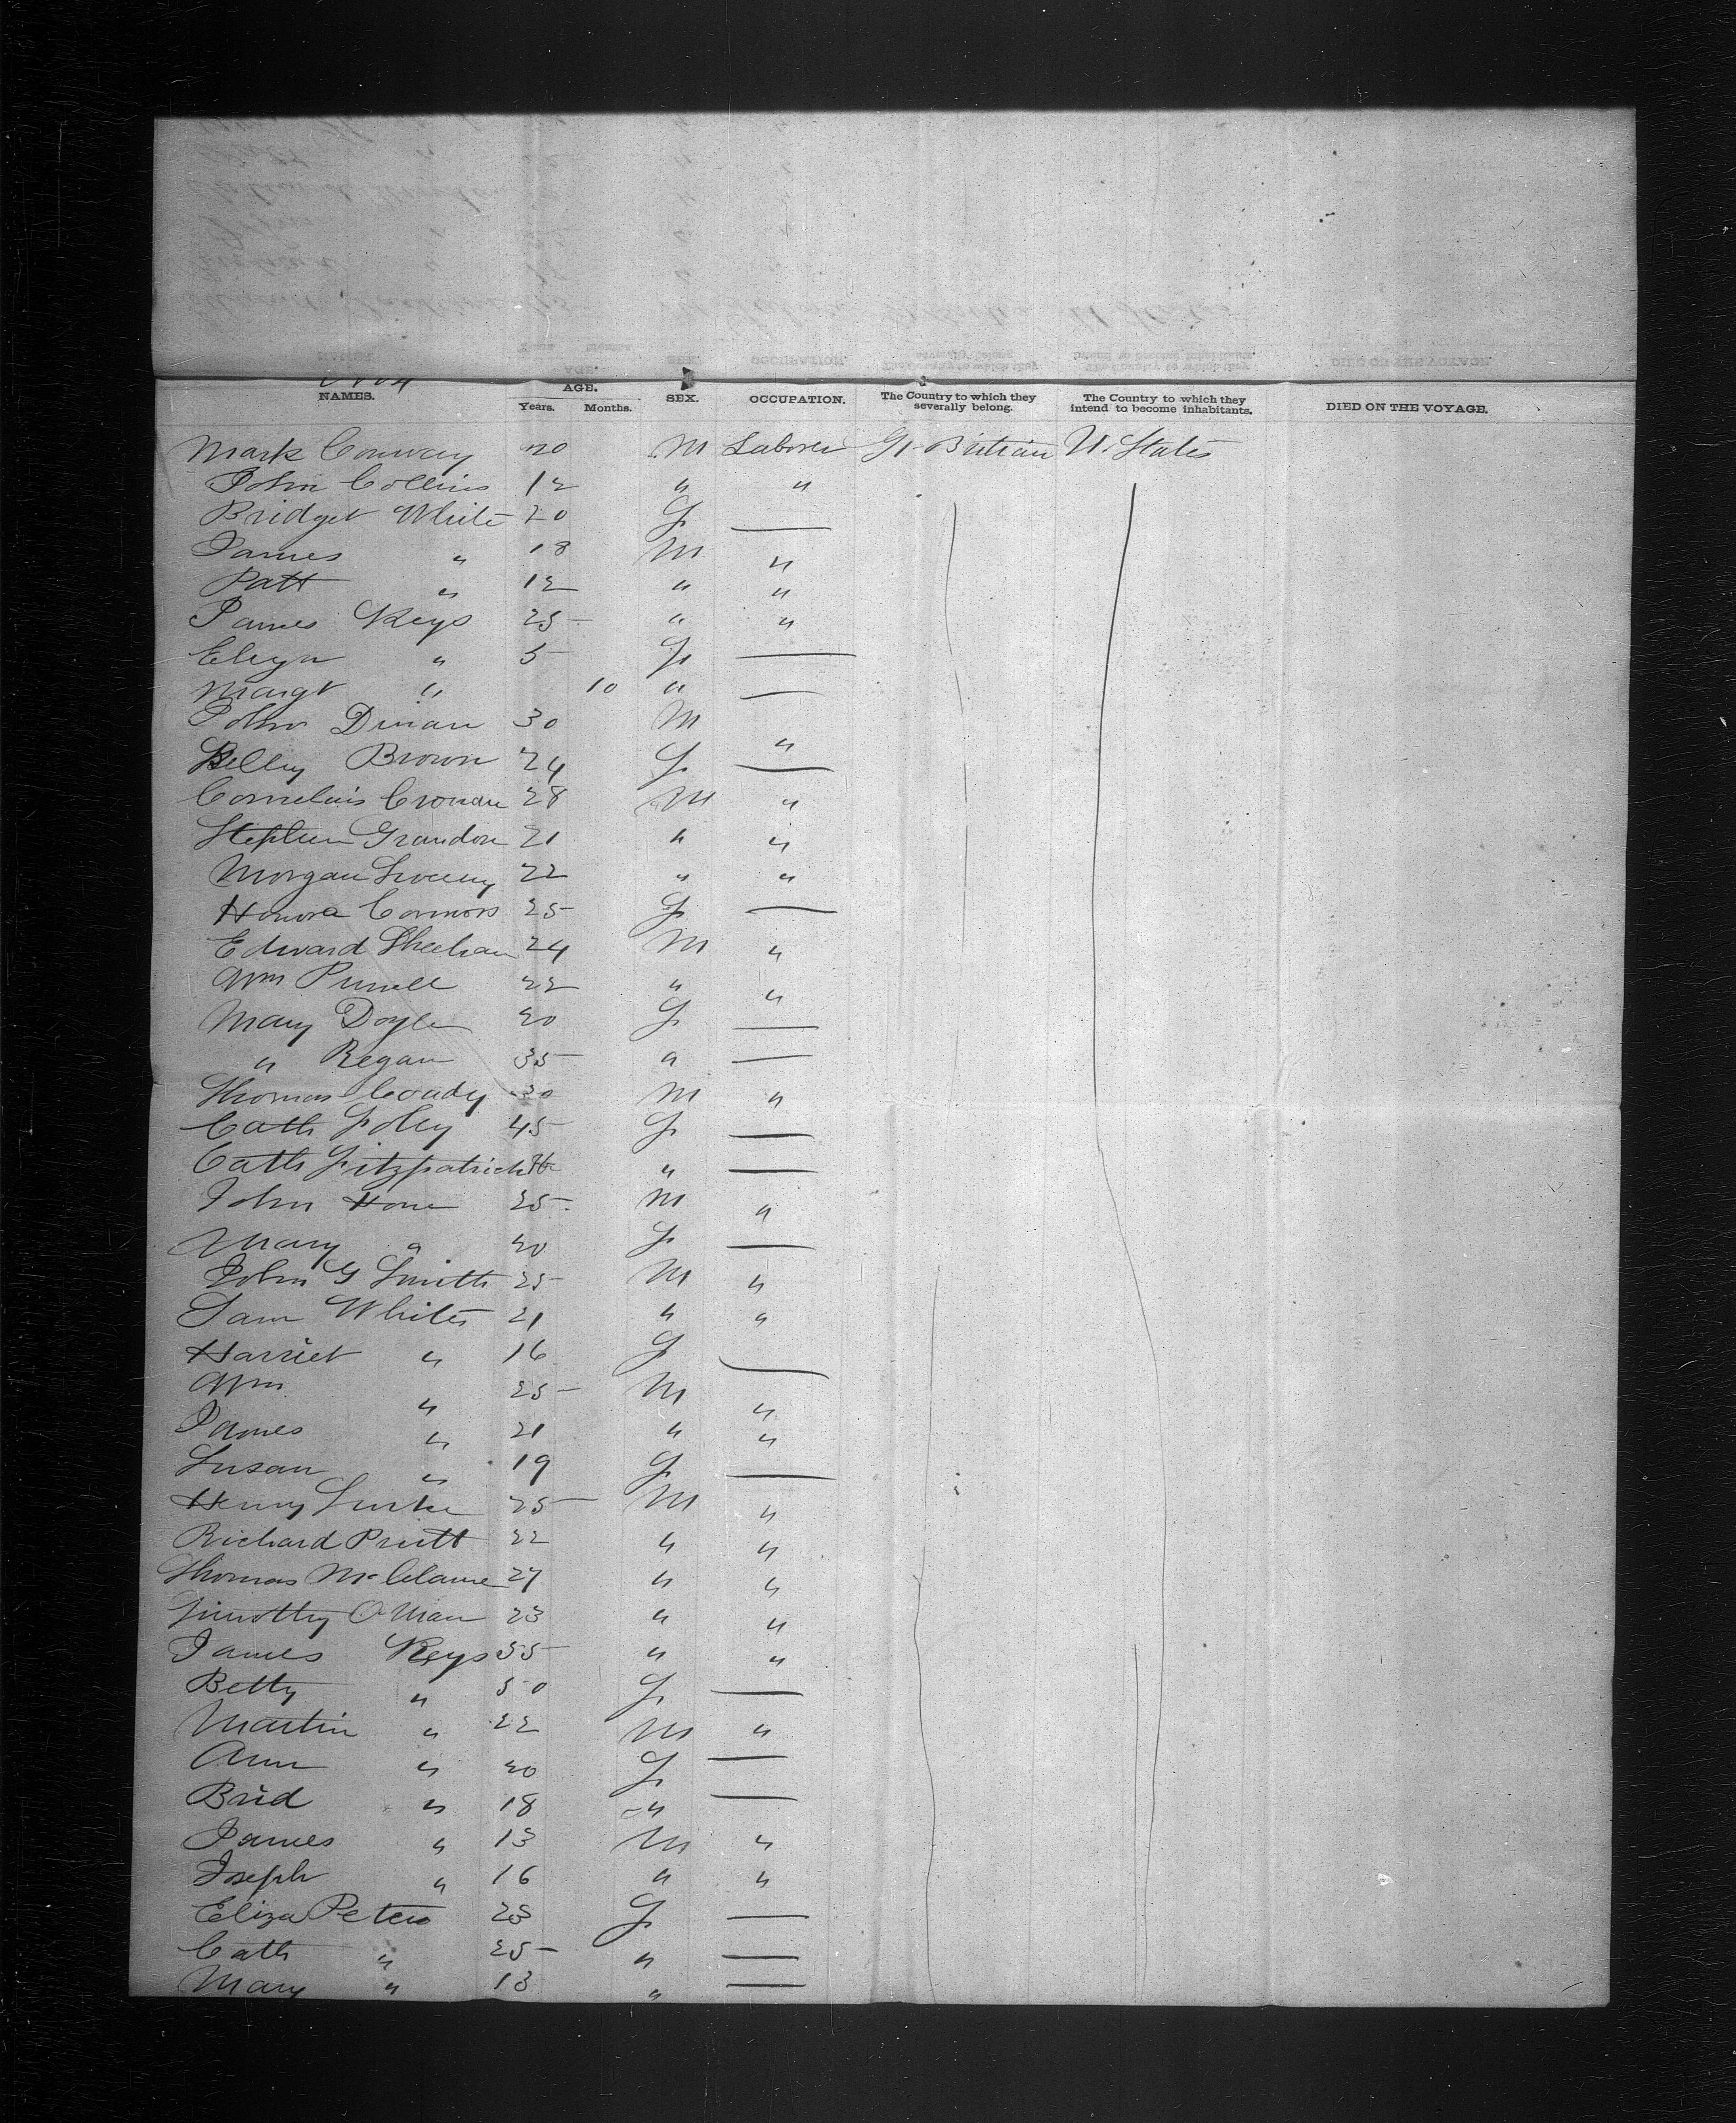 NAMES. AGE. Years. Months. SEX. OCCUPATION. The Country to which they severally belong. The Country to which they intend to become inhabitants. DIED ON THE VOYAGE.
Mark Conway 20 M Laborer Gt Britian U. States
John Collins 12 " "
Bridget White 20 F —
James " 18 M "
Patt " 12 " "
James Keys 25 " "
Eliza " 5 F —
Margt " 10 " —
John Dinan 30 M "
Brown 24 F —
Cornelius Cronan 28 M "
Stephen Grandon 21 " "
Morgan Sweeny 22 " "
Honora Connors 25 F —
Edward Sheehan 24 M "
Wm Purcell 22 " "
Mary Doyle 20 F —
" Regan 35 " —
Thomas Coady 30 M "
Cath Foley 45 F —
Cath Fitzpatrick " —
John Hone 25 M "
Mary " 20 F —
John G Smith 25 M "
Sam White 21 " "
Harriet " 16 F —
Wm " 25 M "
James " 21 " "
Susan " 19 F —
Henry 25 M "
Richard Prutt 22 " "
Thomas 27 " "
Timothy O Man 23 " "
James Keys 55 " "
Betty " 50 F —
Martin " 22 M "
Ann " 20 F —
Brid " 18 " —
James " 13 M "
Joseph " 16 " "
Eliza Peters 23 F —
Cath " 25 " —
Mary " 13 " —